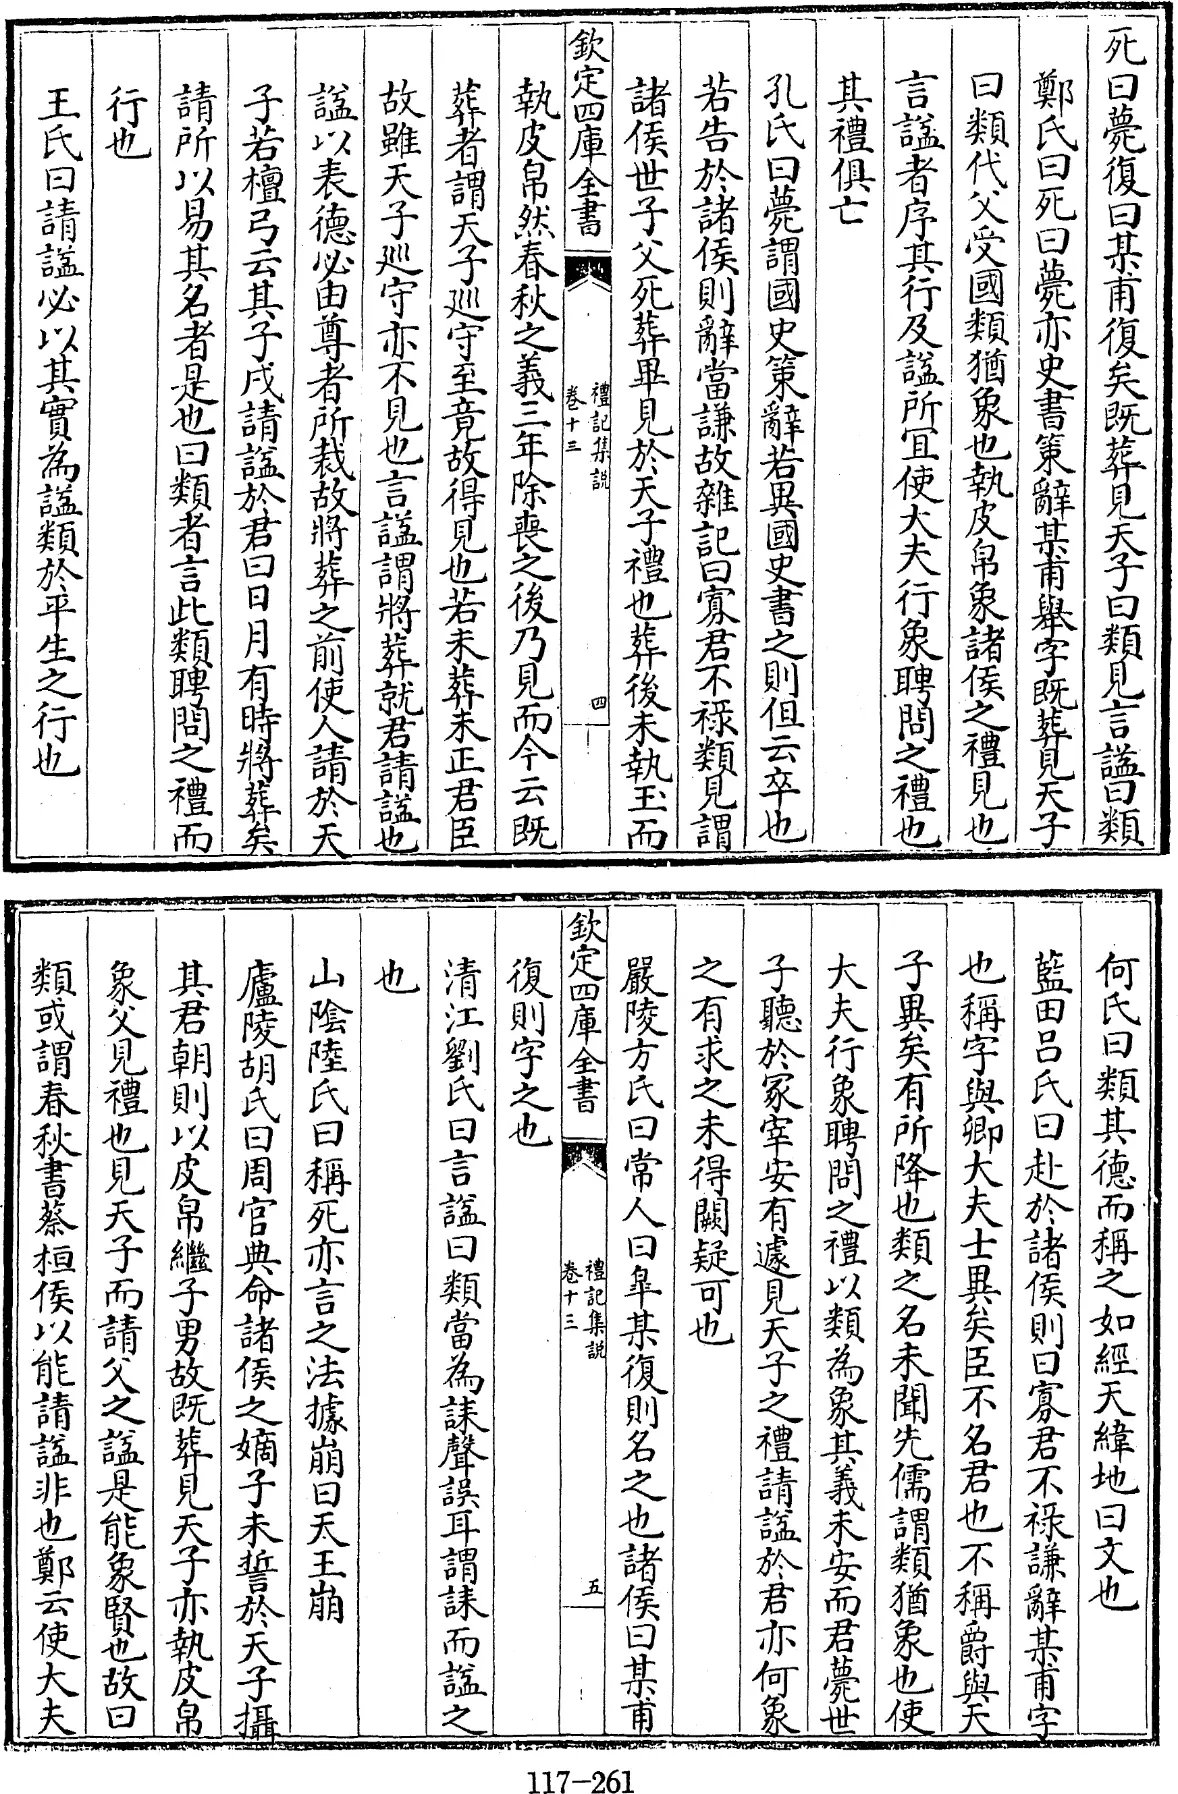 死曰薨復曰某甫復矣既葬見天子曰類見言諡曰類
鄭氏曰死曰薨亦史書策辭某甫舉字既葬見天子
曰類代父受國類猶象也執皮帛象諸侯之禮見也
言諡者序其行及諡所宜使大夫行象聘問之禮也
其禮俱亡
孔氏曰薨謂國史策辭若異國史書之則但云卒也
若告於諸侯則辭當謙故雜記曰寡君不祿類見謂
諸侯世子父死葬畢見於天子禮也葬後未執玉而
欽定四庫全書
禮記集說
卷十三
四
執皮帛然春秋之義三年除喪之後乃見而今云既
葬者謂天子巡守至竟故得見也若未葬未正君臣
故雖天子巡守亦不見也言諡謂將葬就君請諡也
諡以表德必由尊者所裁故將葬之前使人請於天
子若檀弓云其子戍請諡於君曰日月有時將葬矣
請所以易其名者是也曰類者言此類聘問之禮而
行也
王氏曰請諡必以其實為諡類於平生之行也
何氏曰類其德而稱之如經天緯地曰文也
藍田呂氏曰赴於諸侯則曰寡君不祿謙辭某甫字
也稱字與卿大夫士異矣臣不名君也不稱爵與天
子異矣有所降也類之名未聞先儒謂類猶象也使
大夫行象聘問之禮以類為象其義未安而君薨世
子聽於冢宰安有遽見天子之禮請諡於君亦何象
之有求之未得闕疑可也
嚴陵方氏曰常人曰臯某復則名之也諸侯曰某甫
欽定四庫全書
禮記集說
卷十三
五
復則字之也
清江劉氏曰言諡曰類當為誄聲誤耳謂誄而諡之
也
山陰陸氏曰稱死亦言之法據崩曰天王崩
廬陵胡氏曰周官典命諸侯之嫡子未誓於天子攝
其君朝則以皮帛繼子男故既葬見天子亦執皮帛
象父見禮也見天子而請父之諡是能象賢也故曰
類或謂春秋書蔡桓侯以能請諡非也鄭云使大夫
117-261